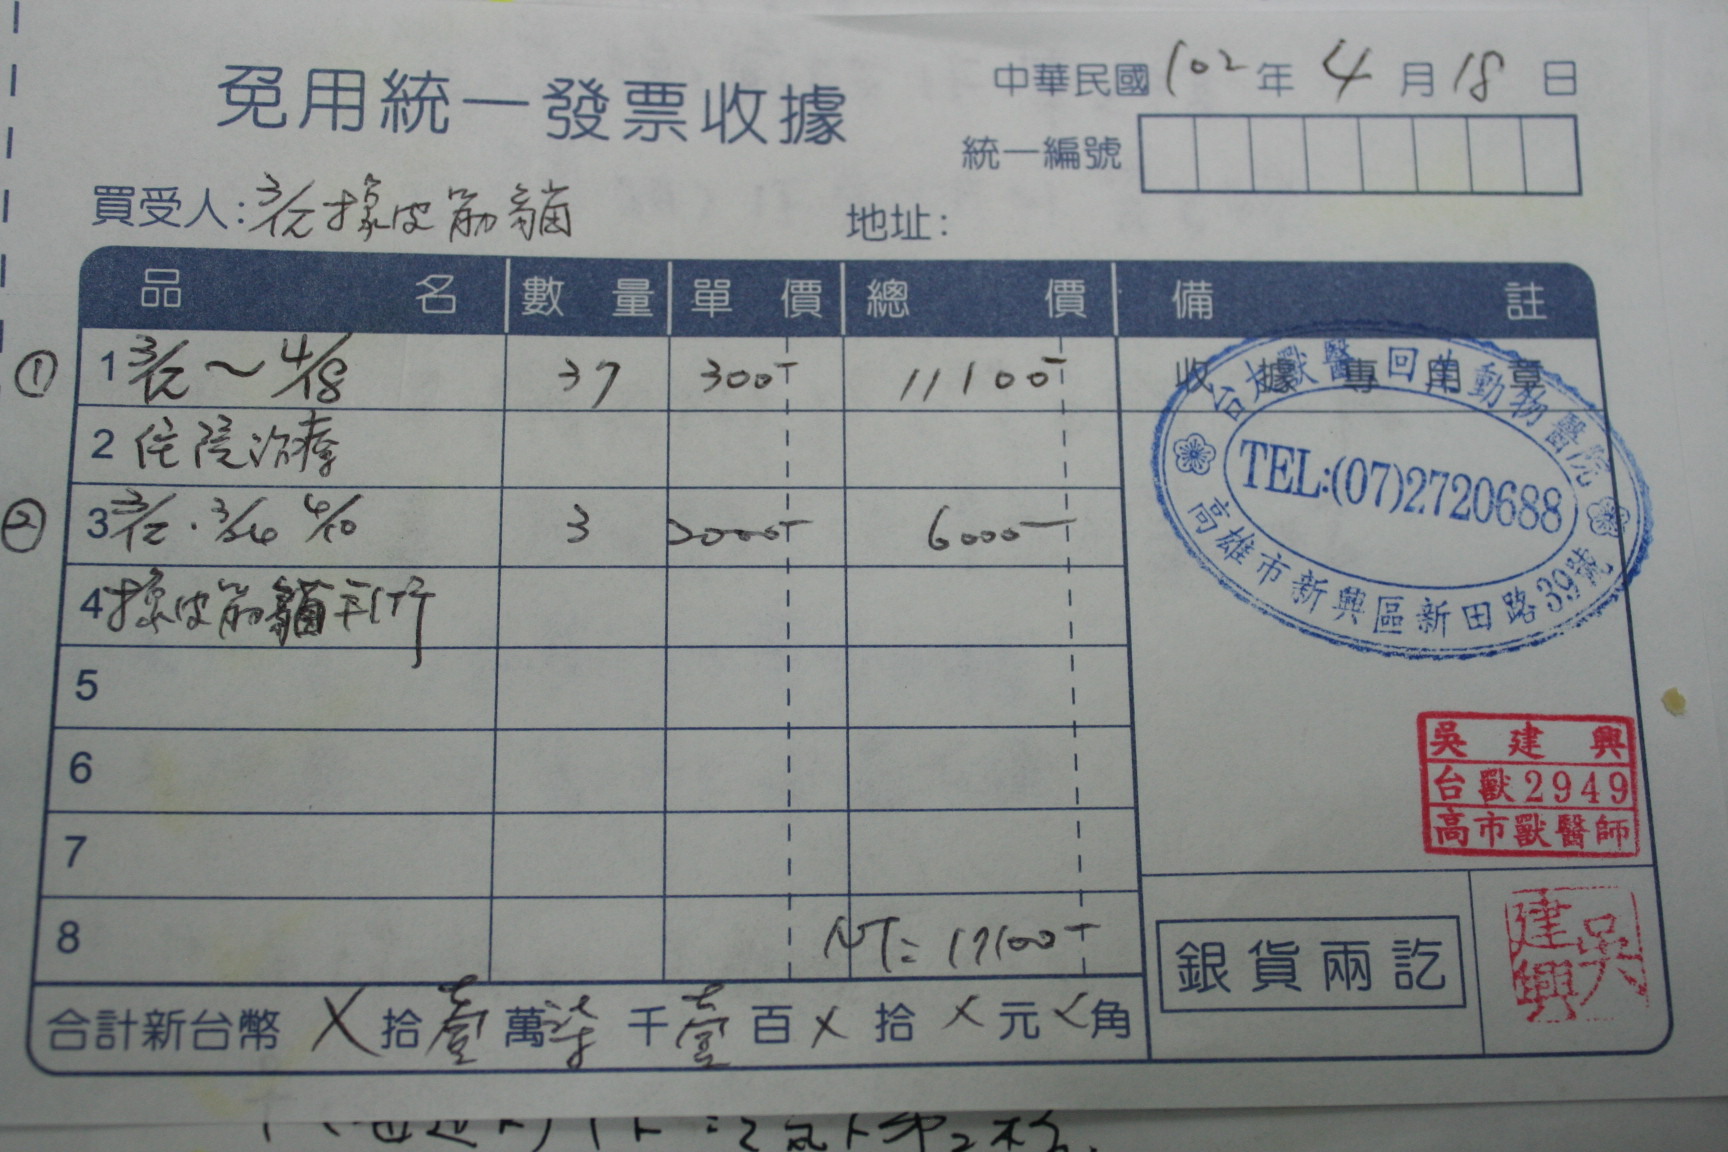 免用統一發票收據
中華民國102年4月18日
統一編號
買受人:3/12橡皮筋貓
地址:
品名 數量 單價 總價 備註
① 1 3/12~4/18 37 300- 11100-
收據專用章
台大獸醫 回生動物醫院
TEL:(07)2720688
高雄市新興區新田路39號
2 住院治療
② 3 3/12.3/26 4/10 3 2000- 6000-
4 橡皮筋貓手術
5
6
7
吳建興
台獸2949
高市獸醫師
8 NT=17100-
銀貨兩訖
吳建興
合計新台幣X拾壹萬柒千壹百X拾X元X角